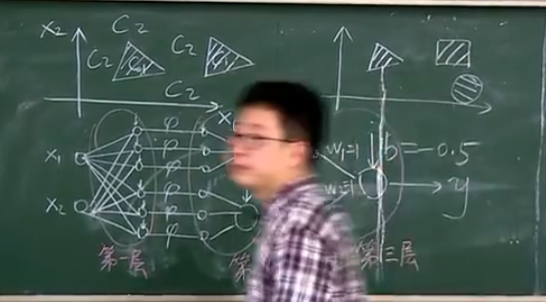 x₂
C₂
C₂
C₁
C₂
C₁
C₂
x₁
x₂
φ
φ
φ
φ
φ
φ
w₁=1
w₂=1
b=-0.5
y
第一层
第
第三层